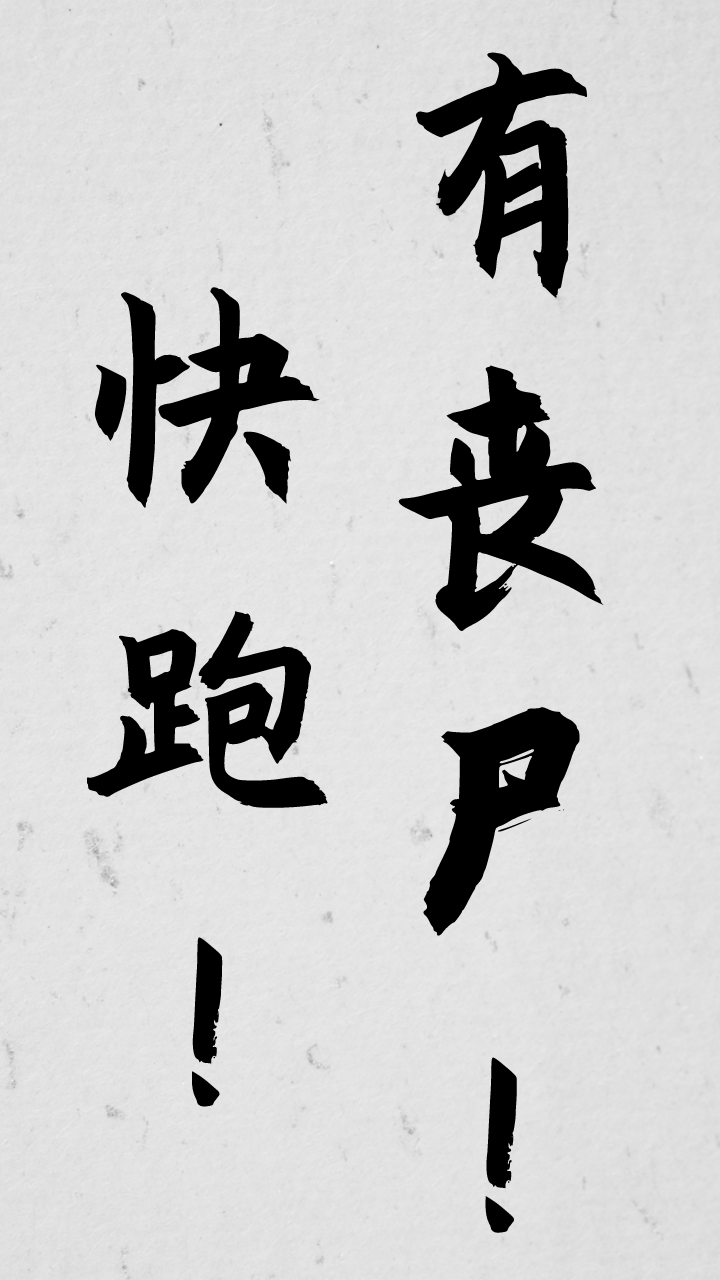 有丧尸！
快跑！